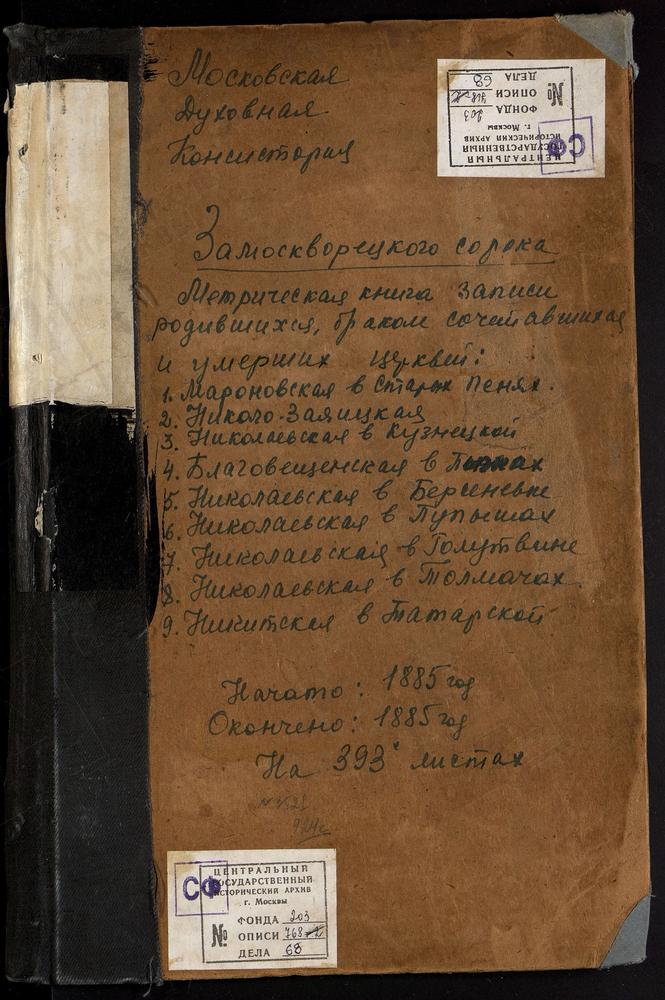 Московская
Духовная
Консистория
ЦЕНТРАЛЬНЫЙ
ГОСУДАРСТВЕННЫЙ
ИСТОРИЧЕСКИЙ АРХИВ
г. Москвы
ФОНДА 203
№ ОПИСИ 768
ДЕЛА 68
СФ
Замоскворецкого сорока
Метрическая книга записи
родившихся, браком сочетавшихся
и умерших церквей:
1. Мароновская в Старых Пенях.
2. Николо-Заяицкая
3. Николаевская в Кузнецкой
4. Благовещенская в
5. Николаевская в Берсеневке
6. Николаевская в Пупышах
7. Николаевская в Голутвине
8. Николаевская в Толмачах.
9. Никитская в Татарской
Начато: 1885 год
Окончено: 1885 год
На 393 листах
СФ
ЦЕНТРАЛЬНЫЙ
ГОСУДАРСТВЕННЫЙ
ИСТОРИЧЕСКИЙ АРХИВ
г. Москвы
ФОНДА 203
№ ОПИСИ 768
ДЕЛА 68